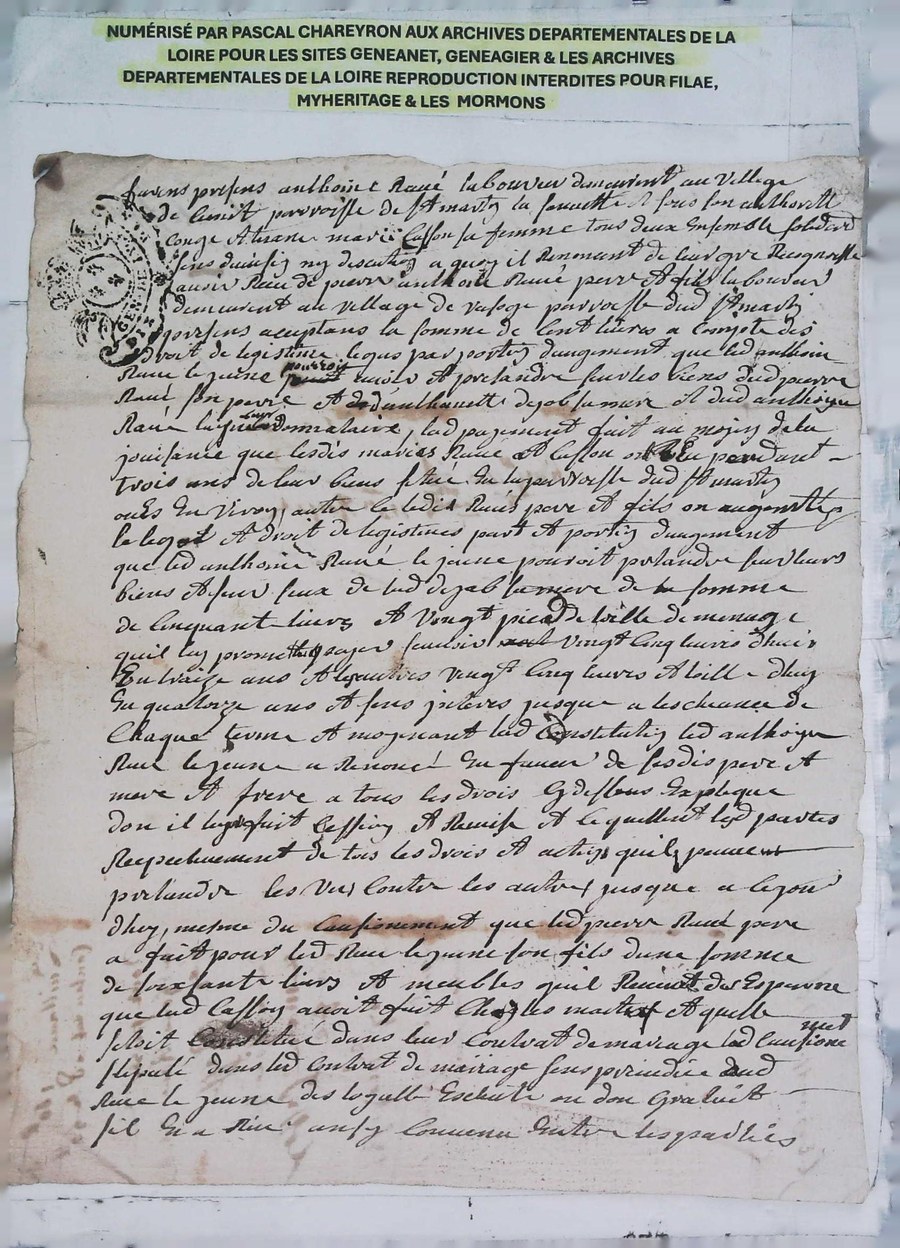 NUMÉRISÉ PAR PASCAL CHAREYRON AUX ARCHIVES DEPARTEMENTALES DE LA
LOIRE POUR LES SITES GENEANET, GENEAGIER & LES ARCHIVES
DEPARTEMENTALES DE LA LOIRE REPRODUCTION INTERDITES POUR FILAE,
MYHERITAGE & LES MORMONS
furens presens anthoine Raué laboureur demeurent au village
de parroisse de st martin la sauuette & sous son authorité
conge & marie Cesson sa femme tous deux Ensemble
sens diuision ny discution a quoy il Renoncent de leur gre
auoir Receu de pierre anthoine Raué pere & fils laboureur
demeurent au village de parroisse dud st martin
presens aceptans la somme de Cent liures a Compte des
droit de legistime legus par portion daugement que led anthoine
Raue le jeune pourroit auoir & pretandre sur les biens dud pierre
Raué son pere & danthoinette dejob sa mere & dud anthoine
Raué donnataire, led payement fait au moyen de la
jouisance que lesdis mariés Raue & Cesson on Eu pendant
trois ans de leur biens situé En la parroisse dud st martin
outre lesdis Raués pere & fils on augenté
le legat & droit de legistime part & portion daugement
que led anthoine Raué le jeune pouroit pretandre sur leurs
biens & sur seux de lad dejob sa mere de la somme
de Cinquante liures & vingt pied de toille de menage
quil luy promette payer scauoir vingt Cinq liures dhuis
En traize ans & les autres vengt Cinq liures & toille dhuy
En quatorze ans & sens interes jusque a lescheance de
Chaque terme & moyenant lad Constitution led anthoine
Raue le jeune a Renoncé En faueur de sesdis pere &
mere & frere a tous les drois Cy dessus Expliqué
don il leur fait Cession & Remise & se quittent les parties
Respectiuement de tous les drois & action quil peuuent
pretandre les vns Contre les autres jusque a ce jour
dhuy, mesme du Cautionement que led pierre Raué pere
a fait pour led Raue le jeune son fils dune somme
de soixsante liures & meubles quil
que lad Cesson auoit fait Chez les & quelle
setoit Constitué dans leur Contrat de mariage led Cautionemet
stipulé dans led Contrat de mairage sens prejudice aud
Raue le jeune des don Gratuit
sil En a Rien ansy Conuenu Entre les parties